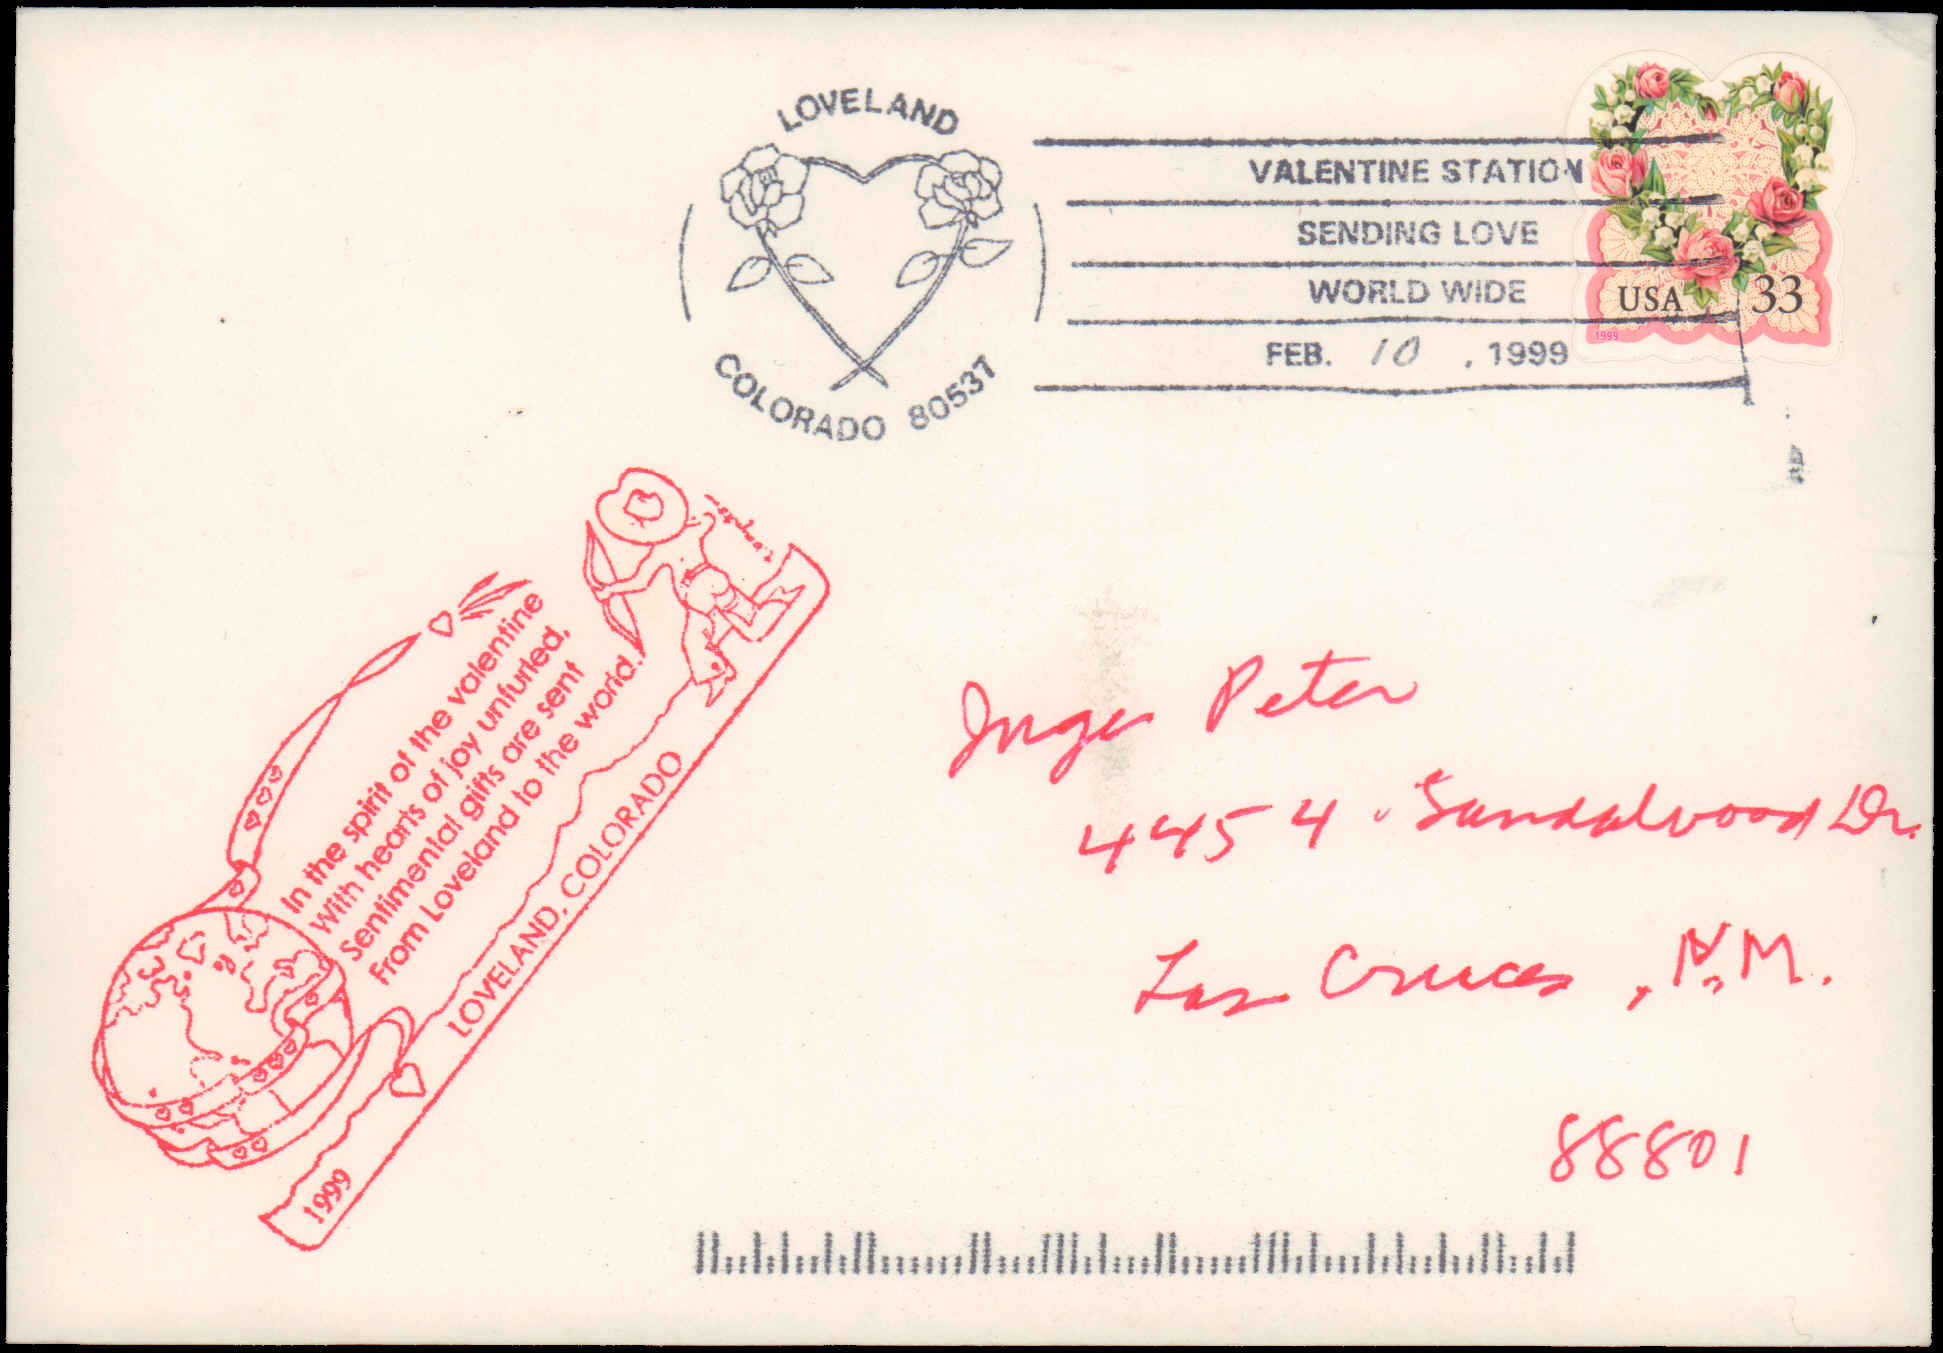 LOVELAND
COLORADO 80537
VALENTINE STATION
SENDING LOVE
WORLD WIDE
FEB. 10, 1999
USA 33
1999
In the spirit of the valentine
With hearts of joy unfurled,
Sentimental gifts are sent
From Loveland to the world.
LOVELAND, COLORADO
1999
Inga Peter
4454 Sandalwood Dr.
Las Cruces, N.M.
88801